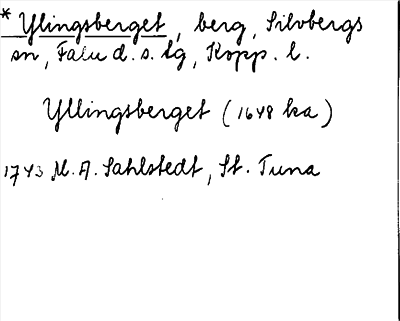 * Ylingsberget, berg, Silvbergs
sn, Falu d. s. lg, Kopp. l.
Yllingsberget (1648 ka)
1743 M. A. Sahlstedt, St. Tuna